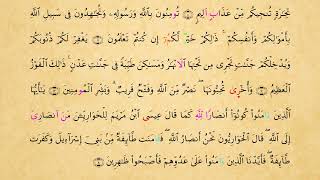 تِجَٰرَةٍ تُنجِيكُم مِّنْ عَذَابٍ أَلِيمٍ ۝ تُؤْمِنُونَ بِٱللَّهِ وَرَسُولِهِۦ وَتُجَٰهِدُونَ فِى سَبِيلِ ٱللَّهِ
بِأَمْوَٰلِكُمْ وَأَنفُسِكُمْ ۚ ذَٰلِكُمْ خَيْرٌ لَّكُمْ إِن كُنتُمْ تَعْلَمُونَ ۝ يَغْفِرْ لَكُمْ ذُنُوبَكُمْ
وَيُدْخِلْكُمْ جَنَّٰتٍ تَجْرِى مِن تَحْتِهَا ٱلْأَنْهَٰرُ وَمَسَٰكِنَ طَيِّبَةً فِى جَنَّٰتِ عَدْنٍ ۚ ذَٰلِكَ ٱلْفَوْزُ
ٱلْعَظِيمُ ۝ وَأُخْرَىٰ تُحِبُّونَهَا ۖ نَصْرٌ مِّنَ ٱللَّهِ وَفَتْحٌ قَرِيبٌ ۗ وَبَشِّرِ ٱلْمُؤْمِنِينَ ۝ يَٰٓأَيُّهَا
ٱلَّذِينَ ءَامَنُوا۟ كُونُوٓا۟ أَنصَارَ ٱللَّهِ كَمَا قَالَ عِيسَى ٱبْنُ مَرْيَمَ لِلْحَوَارِيِّۦنَ مَنْ أَنصَارِىٓ
إِلَى ٱللَّهِ ۖ قَالَ ٱلْحَوَارِيُّونَ نَحْنُ أَنصَارُ ٱللَّهِ ۖ فَـَٔامَنَت طَّآئِفَةٌ مِّنۢ بَنِىٓ إِسْرَٰٓءِيلَ وَكَفَرَت
طَّآئِفَةٌ ۖ فَأَيَّدْنَا ٱلَّذِينَ ءَامَنُوا۟ عَلَىٰ عَدُوِّهِمْ فَأَصْبَحُوا۟ ظَٰهِرِينَ ۝